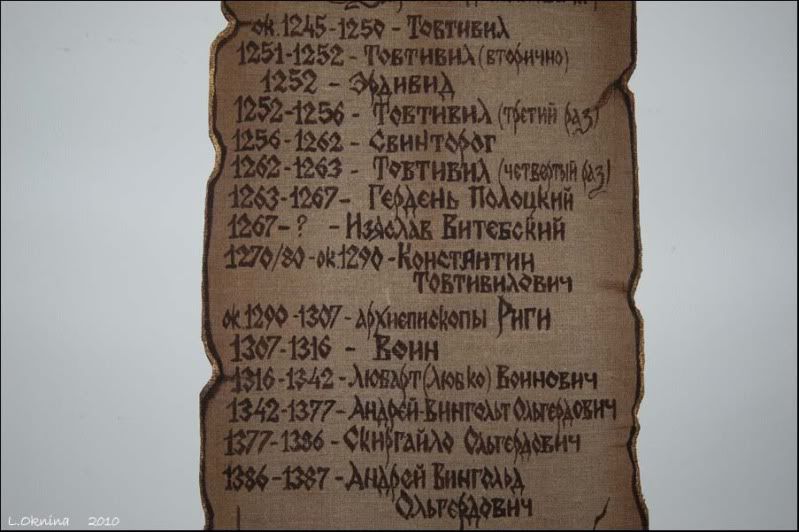 ок. 1245-1250 - Товтивил
1251-1252 - Товтивил (вторично)
1252 - Эрдивид
1252-1256 - Товтивил (третий раз)
1256-1262 - Свинторог
1262-1263 - Товтивил (четвертый раз)
1263-1267 - Гердень Полоцкий
1267-? - Изяслав Витебский
1270/80-ок.1290 - Константин
Товтивилович
ок.1290-1307-архиепископы Риги
1307-1316 - Воин
1316-1342-Любарт(Любко) Воинович
1342-1377-Андрей-Вингольт Ольгердович
1377-1386-Скиргайло Ольгердович
1386-1387-Андрей Вингольд
Ольгердович
L.Oknina 2010